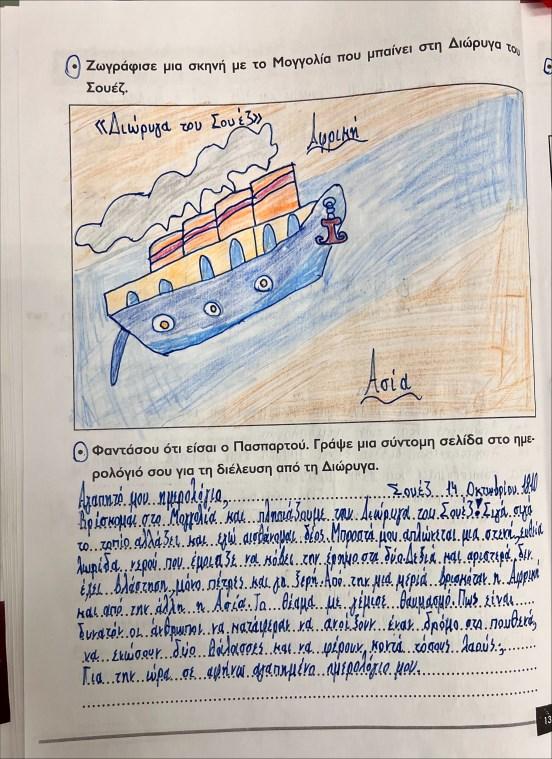 Ζωγράφισε μια σκηνή με το Μογγολία που μπαίνει στη Διώρυγα του
Σουέζ.
«Διώρυγα του Σουέζ»
Αφρική
Ασία
Φαντάσου ότι είσαι ο Πασπαρτού. Γράψε μια σύντομη σελίδα στο ημε-
ρολόγιό σου για τη διέλευση από τη Διώρυγα.
Αγαπητό μου ημερολόγιο, Σουέζ 14 Οκτωβρίου
Βρίσκομαι στο Μογγολία και πλησιάζουμε την Διώρυγα του Σουέζ! Σιγά σιγά
το τοπίο αλλάζει και εγώ αισθάνομαι δέος. Μπροστά μου απλώνεται μια στενή, ευθεία
λωρίδα νερού που έμοιαζε να κόβει την έρημο στα δύο. Δεξιά και αριστερά δεν
έχει βλάστηση, μόνο πέτρες και γη ξερή. Από την μια μεριά βρίσκεται η Αφρική
και από την άλλη η Ασία. Το θέαμα με γέμισε θαυμασμό. Πως είναι
δυνατόν οι άνθρωποι να κατάφεραν να ανοίξουν έναν δρόμο στο πουθενά,
να ενώσουν δύο θάλασσες και να φέρουν κοντά τόσους λαούς;
Για την ώρα σε αφήνω αγαπημένο ημερολόγιο μου.
13